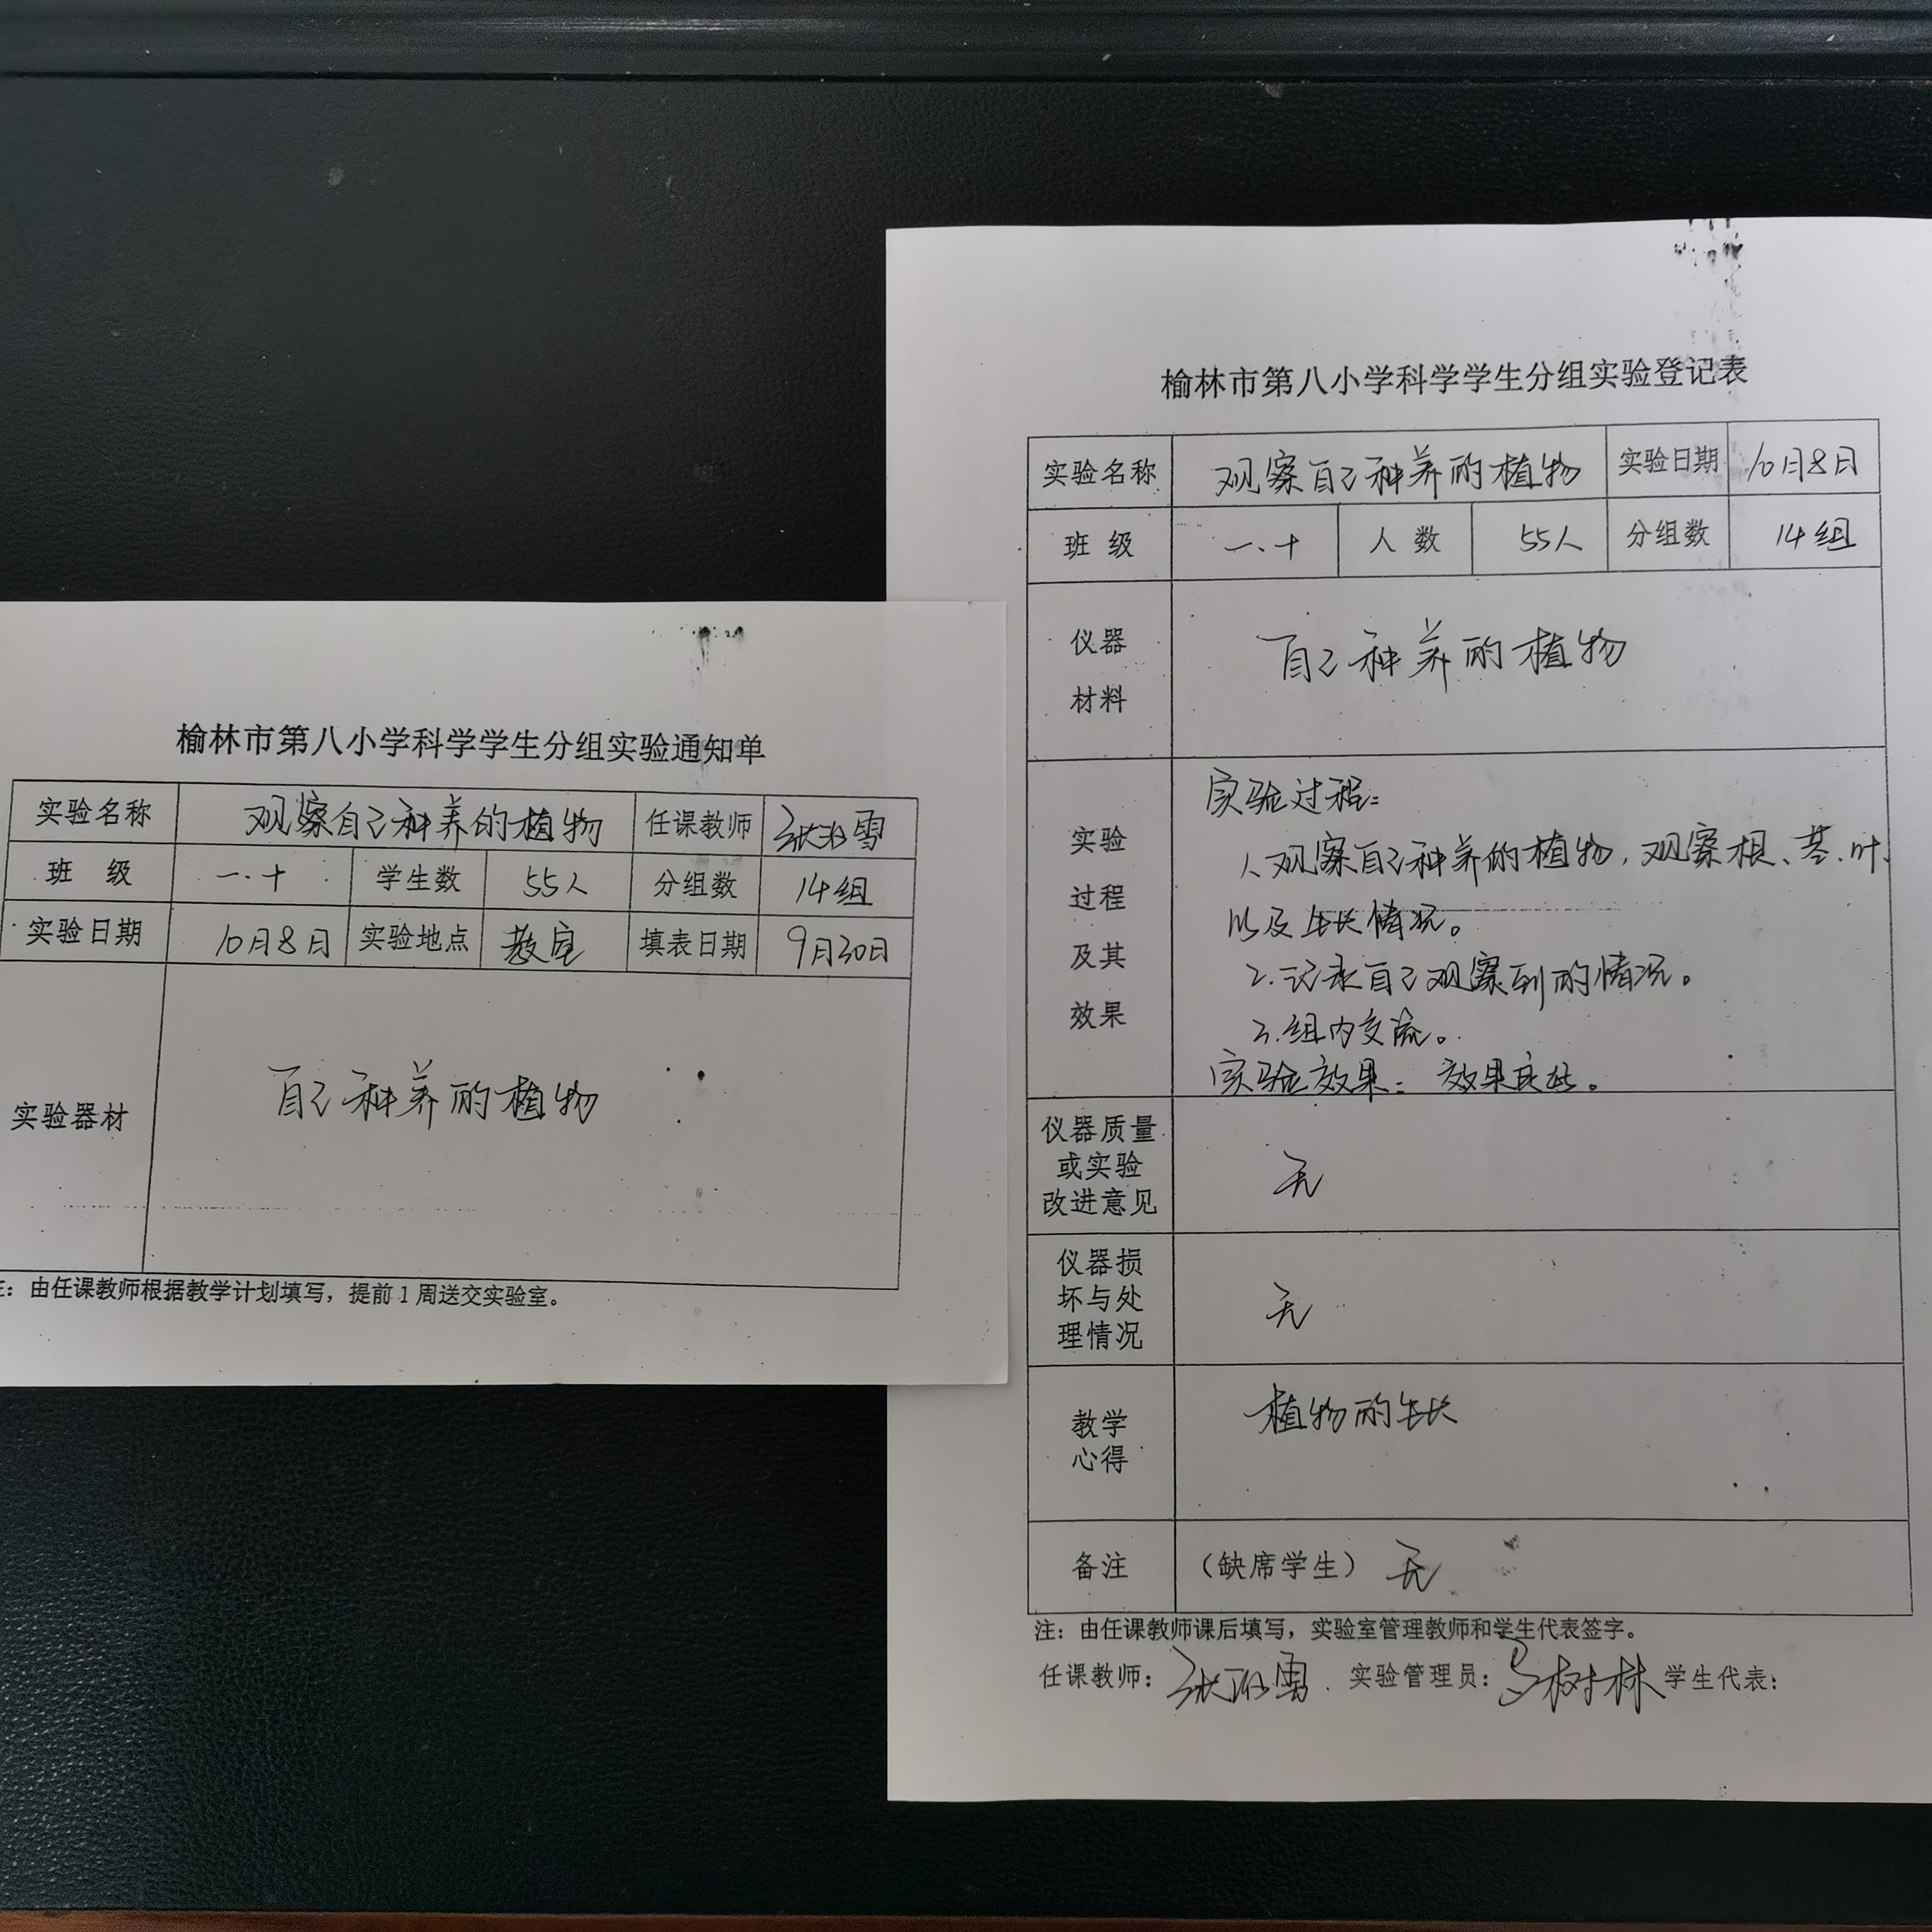 榆林市第八小学科学学生分组实验通知单
实验名称 观察自己种养的植物 任课教师 张 雪
班 级 一.十 学生数 55人 分组数 14组
实验日期 10月8日 实验地点 教室 填表日期 9月30日
实验器材 自己种养的植物
：由任课教师根据教学计划填写，提前1周送交实验室。
榆林市第八小学科学学生分组实验登记表
实验名称 观察自己种养的植物 实验日期 10月8日
班 级 一.十 人 数 55人 分组数 14组
仪器
材料
自己种养的植物
实验
过程
及其
效果
实验过程：
1.观察自己种养的植物，观察根、茎、叶、
以及生长情况。
2.记录自己观察到的情况。
3.组内交流。
实验效果：效果良好。
仪器质量
或实验
改进意见
无
仪器损
坏与处
理情况
无
教学
心得
植物的生长
备注 （缺席学生） 无
注：由任课教师课后填写，实验室管理教师和学生代表签字。
任课教师：张 雪 实验管理员： 树林 学生代表：